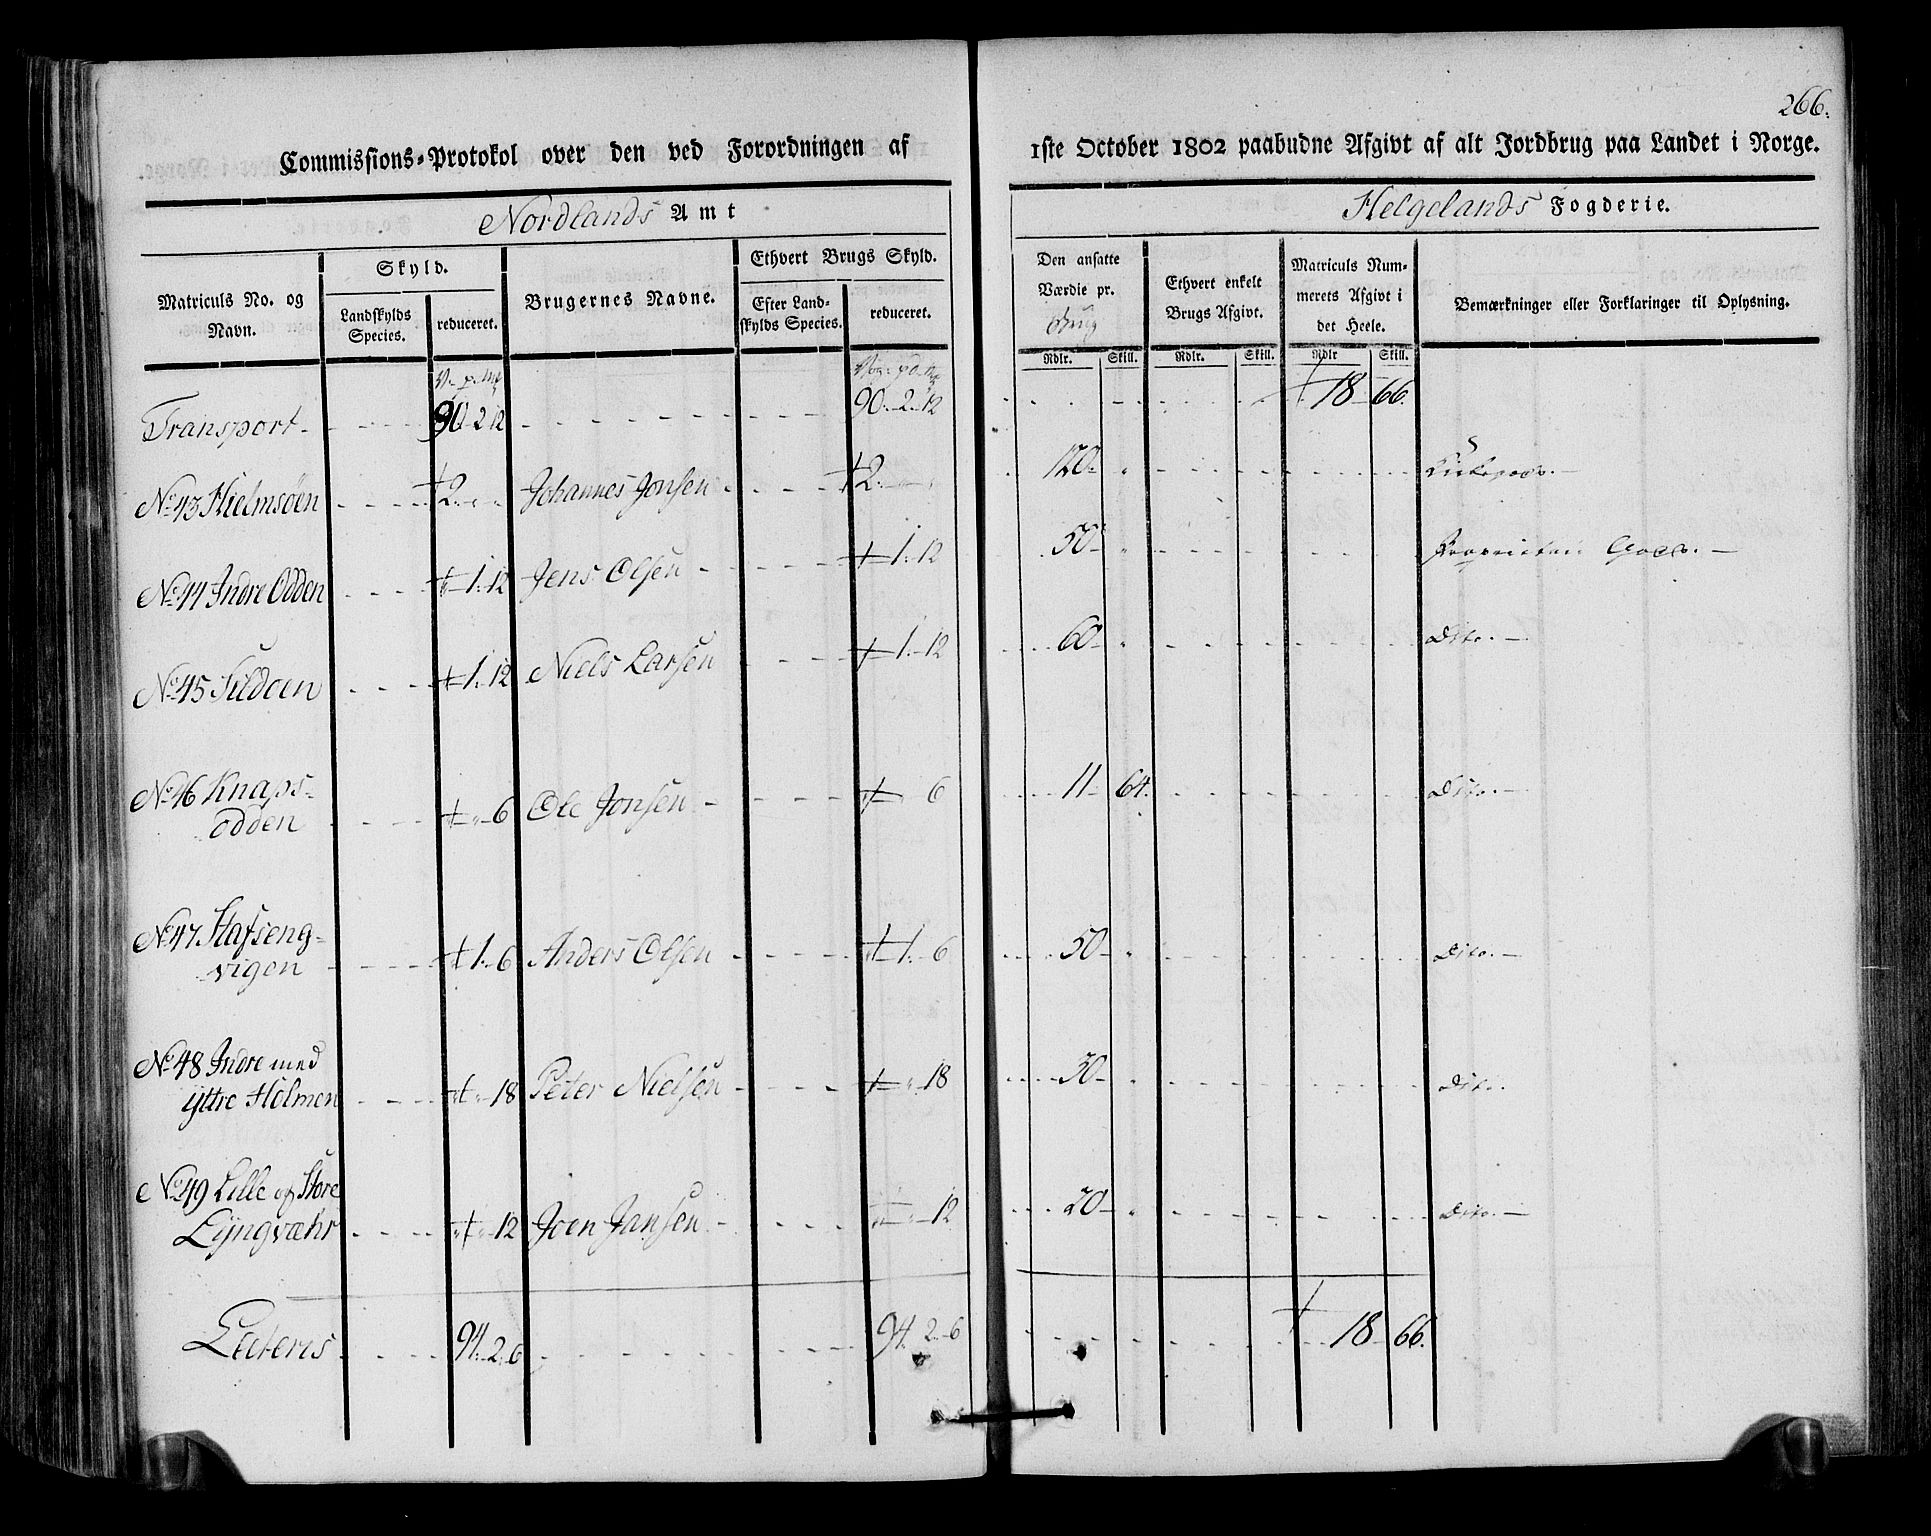 266.
Commissions-Protokol over den ved Forordningen af 1ste October 1802 paabudne Afgivt af alt Jordbrug paa Landet i Norge.
Nordlands Amt Helgelands Fogderie.
Matriculs No. og Navn. Skyld. Landskylds Species. reduceret. Brugernes Navne. Ethvert Brugs Skyld. Efter Landskylds Species. reduceret. Den ansatte Værdie pr. Brug Ethvert enkelt Brugs Afgivt. Matriculs Nummerets Afgivt i det Heele. Bemærkninger eller Forklaringer til Oplysning.
Rdlr. Skill. Rdlr. Skill. Rdlr Skill.
V. p. Mk Vog: pd. Mk
Transport 90 - 2 12 90 - 2 - 12 18 - 66.
No 43 Hielmsøen 2 Johannes Jonsen 2 120 -
No 44 Indre Odden 1 - 12 Jens Olsen 1 - 12 50 - Proprietair Gods. -
No 45 Sildoen 1 - 12 Niels Larsen 1 - 12 60 - Dito. -
No 46 Knaps-
odden 6 Ole Jonsen 6 11 - 64. Dito. -
No 47 Hafseng-
vigen 1 - 6 Anders Olsen 1 - 6 50 - Dito. -
No 48 Indre med
ÿttre Holmen 18 Peter Nielsen 18 30 - Dito.
No 49 Lille og Store
Lÿngværhr 12 Joen Jansen 12 20 - Dito. -
Lateris 94 - 2 - 6 94. 2 - 6 18 - 66.